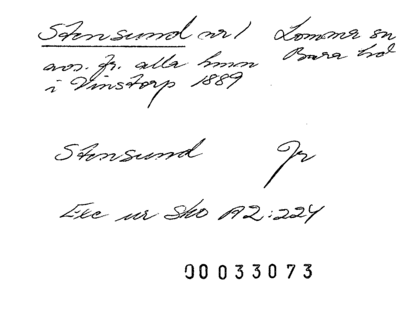 Stensund nr 1 Lomma sn
avs. fr. alla hmn Bara hd
i Vinstorp 1889
Stensund Jr
Exc ur Sko A2:224
00033073